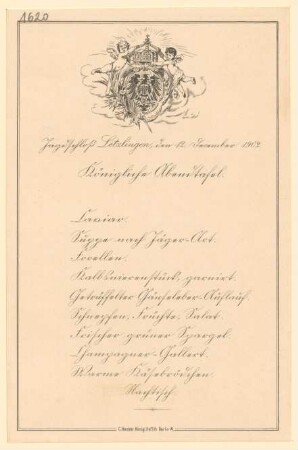 1620
Jagdschloß Letzlingen, den 12. December 1902.
Königliche Abendtafel.
Caviar.
Suppe nach Jäger-Art.
Forellen.
Kalbsnierenstück, garnirt.
Getrüffelter Gänseleber-Auflauf.
Schnepfen, Früchte, Salat
Frischer grüner Spargel
Champagner-Gallert.
Warme Käsebrödchen.
Nachtisch.